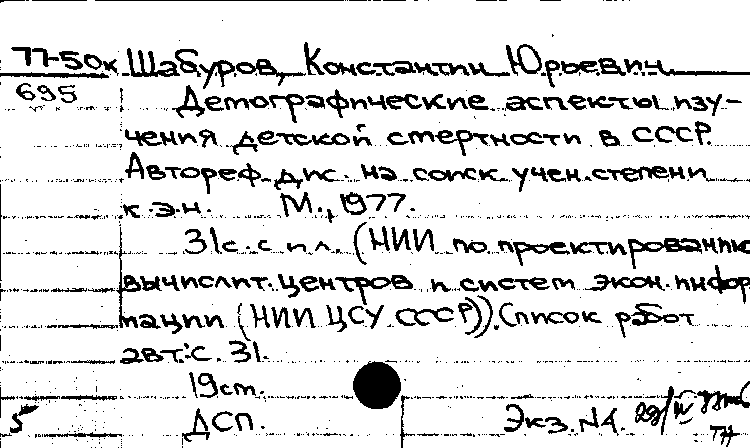 77-50к Шабуров, Константин Юрьевич.
695 Демографические аспекты изу-
чения детской смертности в СССР.
Автореф. дис. на соиск. учен. степени
к.э.н. М., 1977.
31с. с ил. (НИИ по проектированию
вычислит. центров и систем экон. инфор
мации (НИИ ЦСУ СССР)). Список работ
авт.: с. 31.
19см.
5 ДСП. Экз. №4.